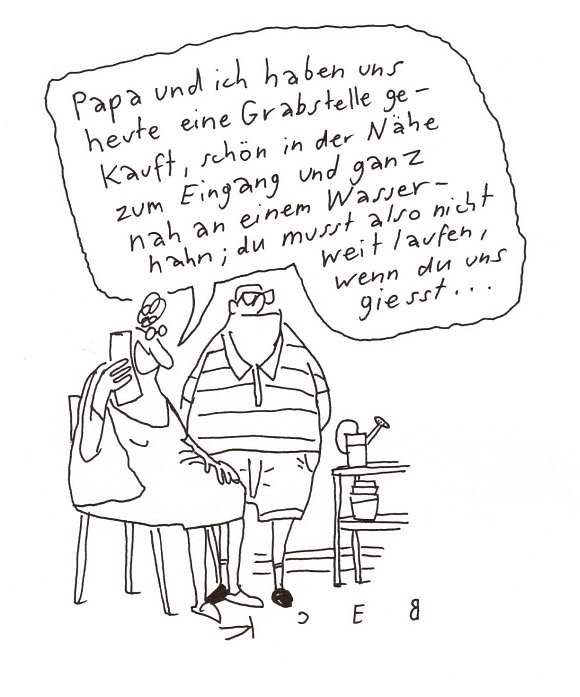 Papa und ich haben uns
heute eine Grabstelle ge-
kauft, schön in der Nähe
zum Eingang und ganz
nah an einem Wasser-
hahn; du musst also nicht
weit laufen,
wenn du uns
giesst...
BECK